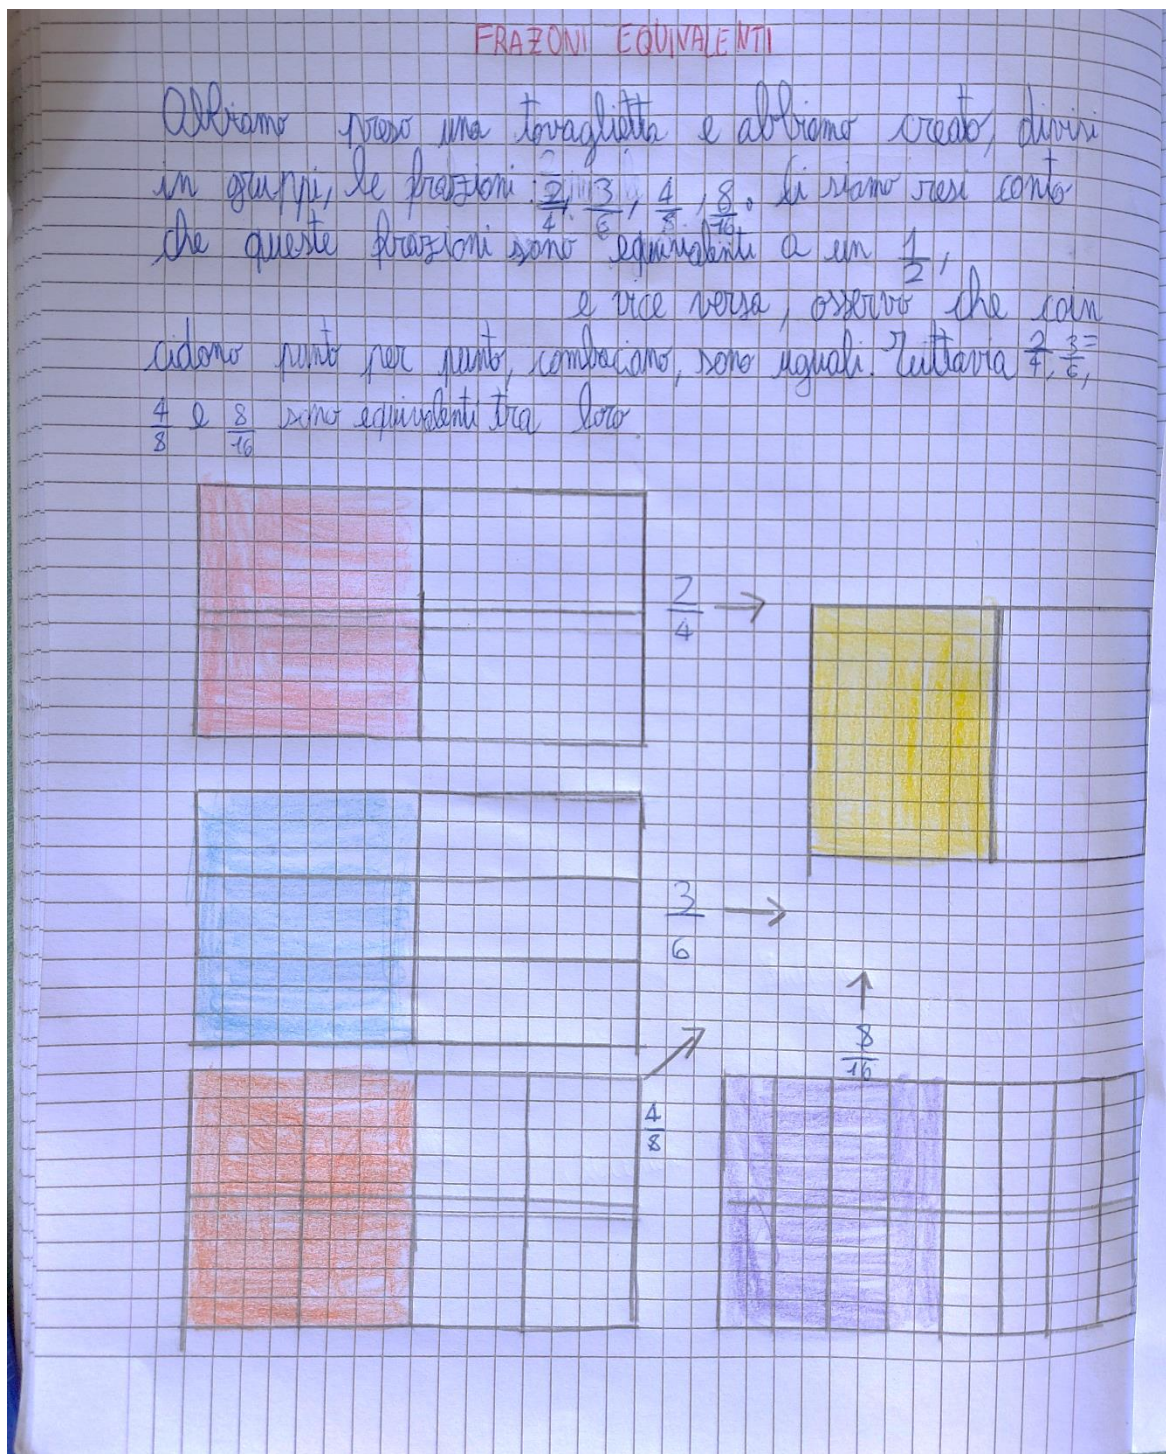 FRAZONI EQUIVALENTI
Abbiamo preso una tovaglietta e abbiamo creato, divisi
in gruppi, le frazioni: 2/4, 3/6, 4/8, 8/16. Ci siamo resi conto
che queste frazioni sono equivalenti a un 1/2,
e vice versa, osservo che coin
cidono punto per punto, combaciano, sono uguali. Tuttavia 2/4, 3/6,
4/8 e 8/16 sono equivalenti tra loro.
2/4 →
3/6 →
8/16
4/8